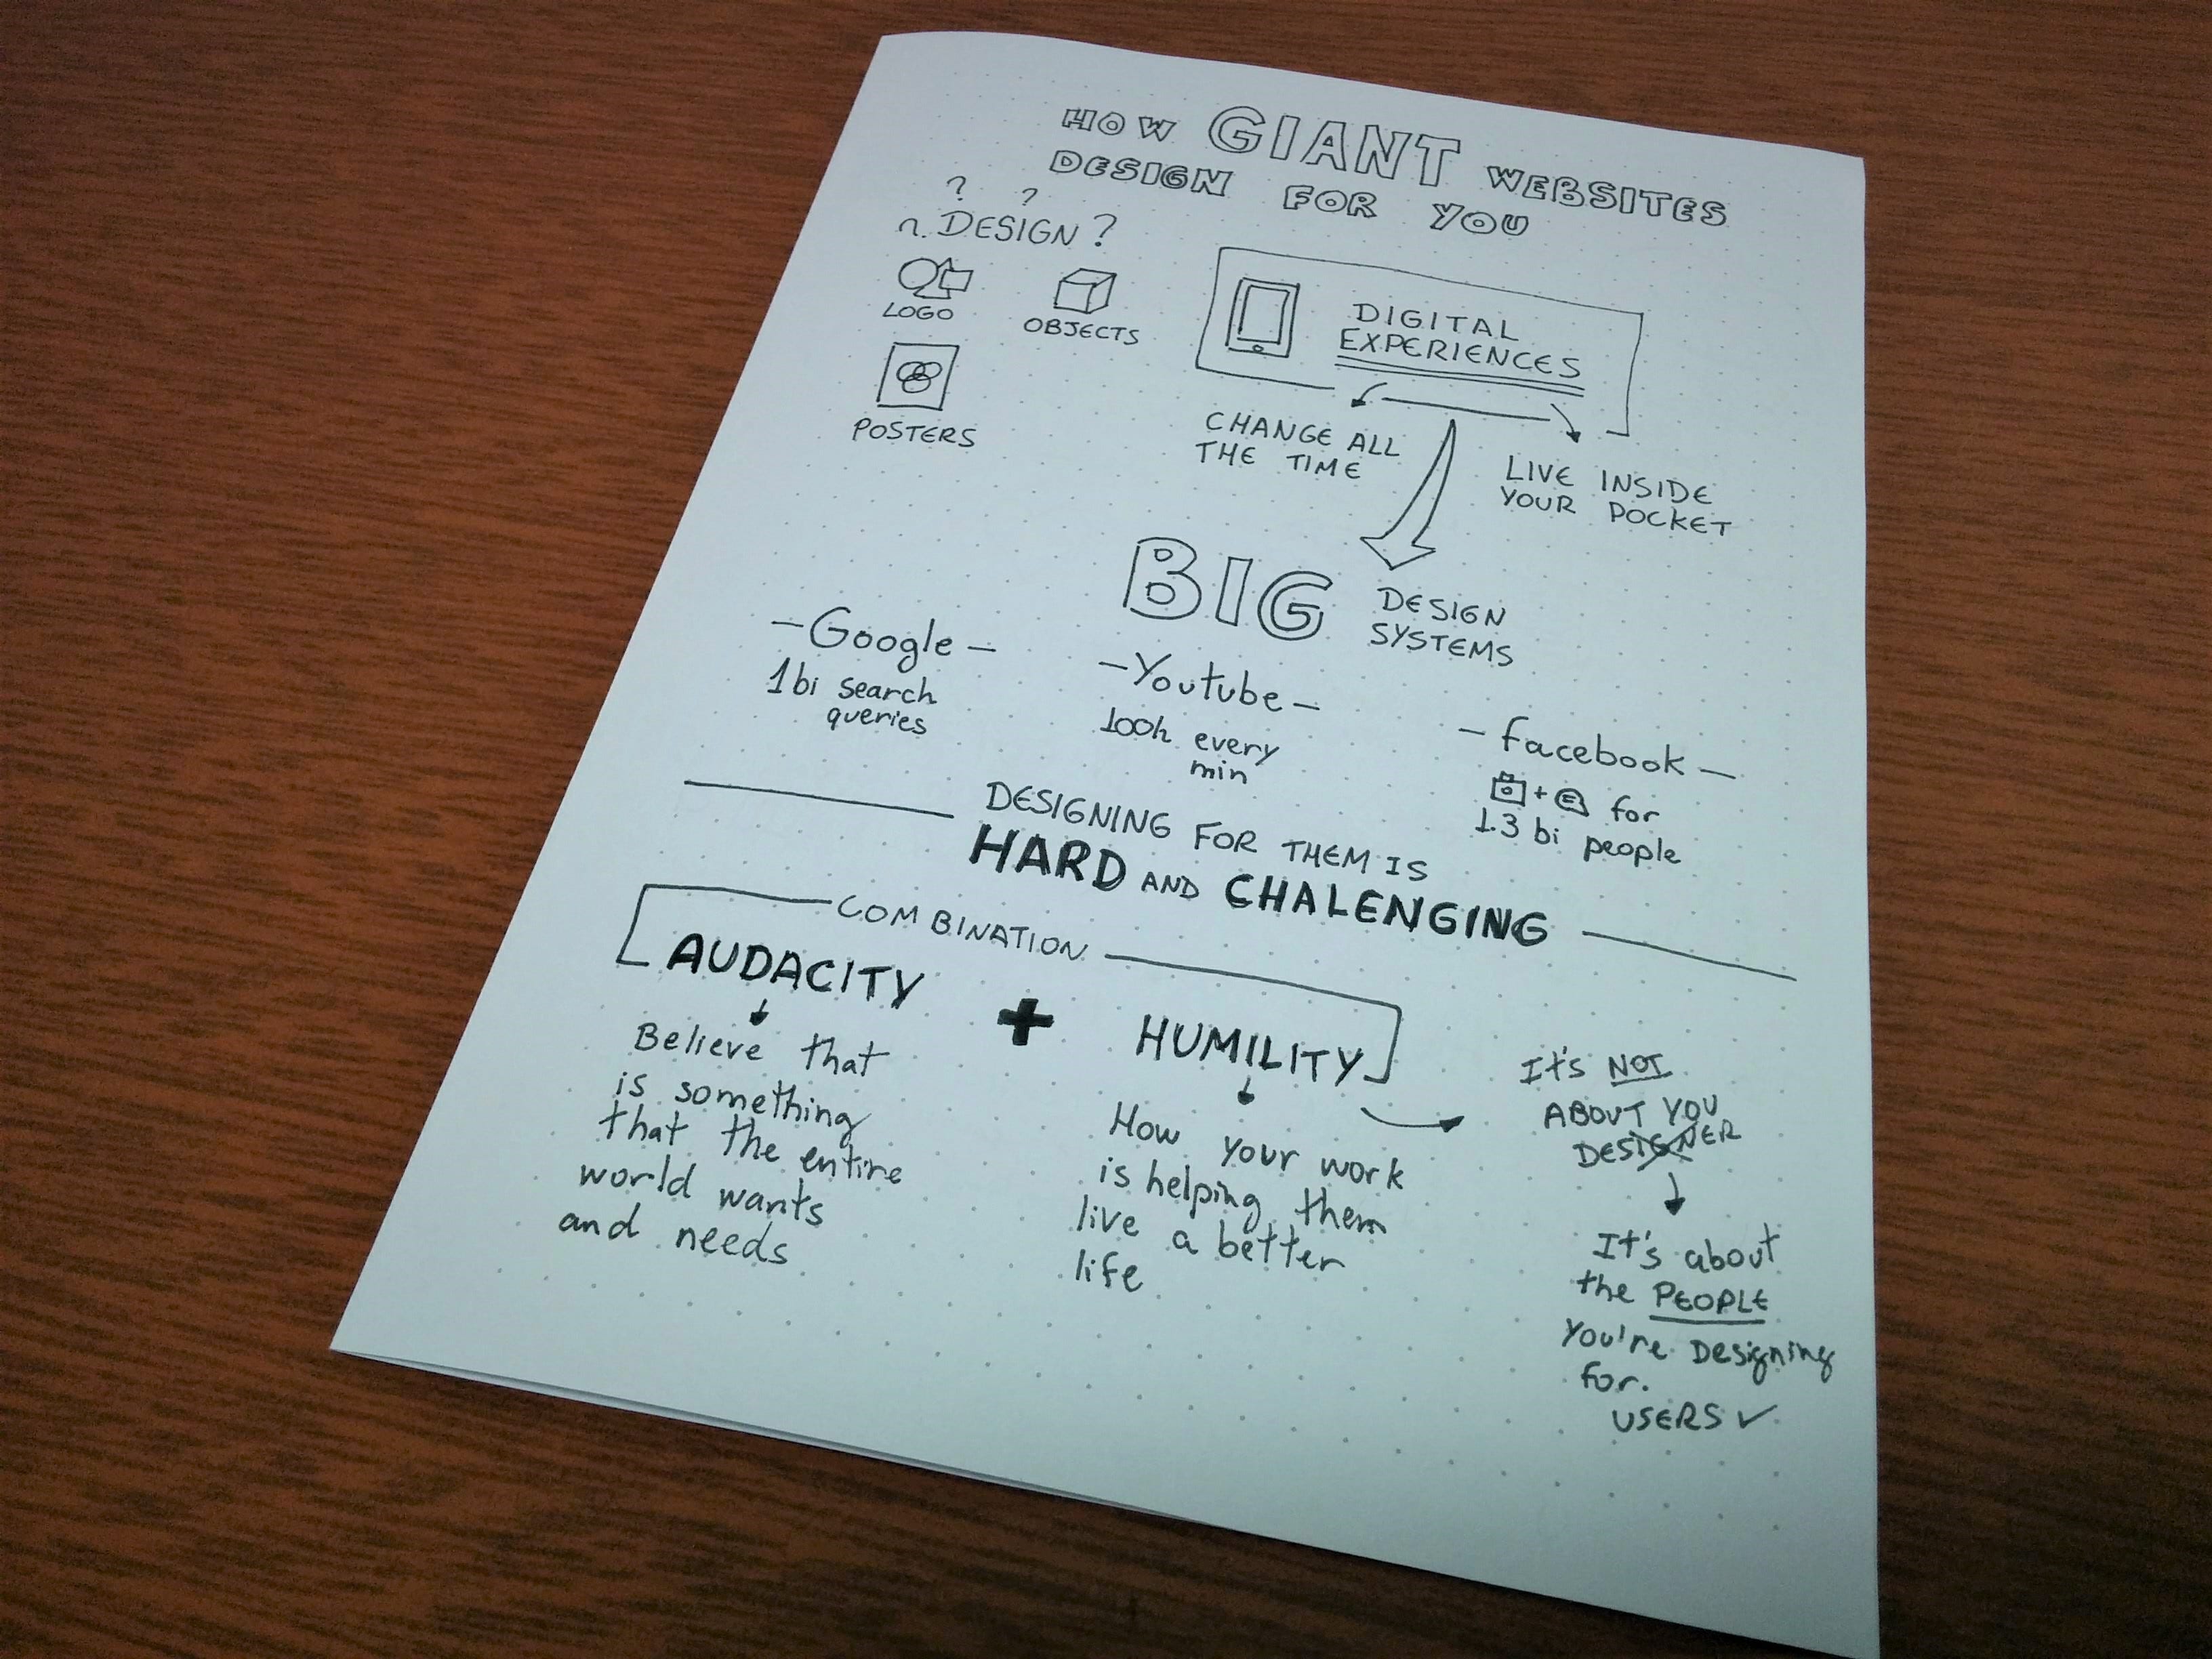 HOW GIANT WEBSITES
DESIGN FOR YOU
? ?
n. DESIGN?
LOGO
OBJECTS
POSTERS
DIGITAL
EXPERIENCES
CHANGE ALL
THE TIME
LIVE INSIDE
YOUR POCKET
BIG DESIGN
SYSTEMS
- Google -
1 bi search
queries
- Youtube -
100h every
min
- facebook -
+ for
1.3 bi people
DESIGNING FOR THEM IS
HARD AND CHALENGING
COMBINATION
AUDACITY
+
HUMILITY
Believe that
is something
that the entire
world wants
and needs
How your work
is helping them
live a better
life
It's NOT
ABOUT YOU
DESIGNER
It's about
the PEOPLE
You're Designing
for.
USERS ✓